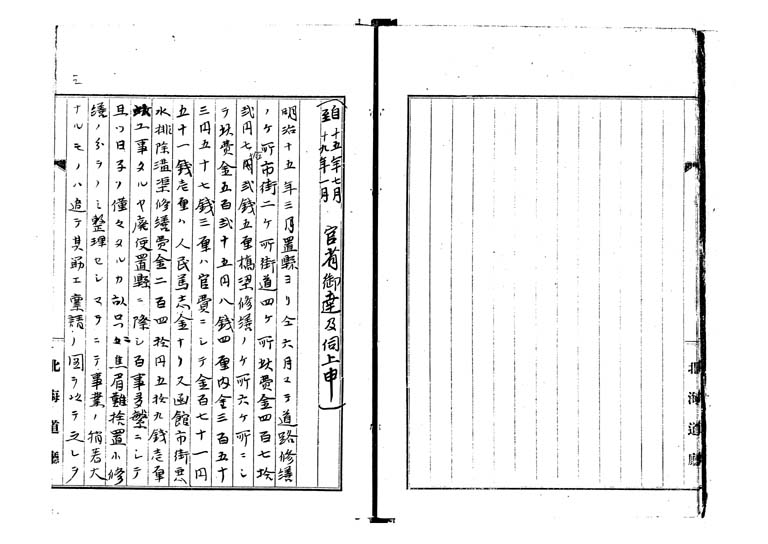 自十五年七月
至十九年一月
官省御達及伺上申
明治十五年三月置縣ヨリ仝六月マテ道路修繕
ノケ所市街二ケ所街道四ケ所此費金四百七拾
弐円七円弐銭五厘橋梁修繕ノケ所六ケ所ニシ
テ此費金五百弐十五円八銭四厘内金三百五十
三円五十七銭三厘ハ官費ニシテ金百七十一円
五十一銭壱厘ハ人民篤志金ナリス函館市街悪
水排除溝渠修繕費金二百四拾円五拾九銭壱厘
工事タルヤ廃使置縣ニ際シ百事多繁ニシテ
且ツ日子ノ僅々タルカ故ニ只焦眉難捨置小修
繕ノ分ラノミ整理セシマテニテ事業ノ稍著大
ナルモノハ追テ其筋エ稟請ノ図ヲ以テ之レヲ
三
北海道廳
北海道廳